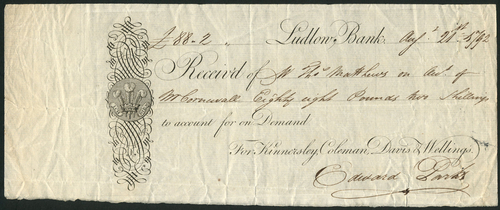 £88-2 „ Ludlow Bank Augt. 21st 1792
Receiv'd of Mr Thos. Matthews on Acct. of
Mr Cornewall Eighty eight Pounds two Shillings
to account for on Demand
For Kinnersley, Coleman, Davis & Wellings.
Edward